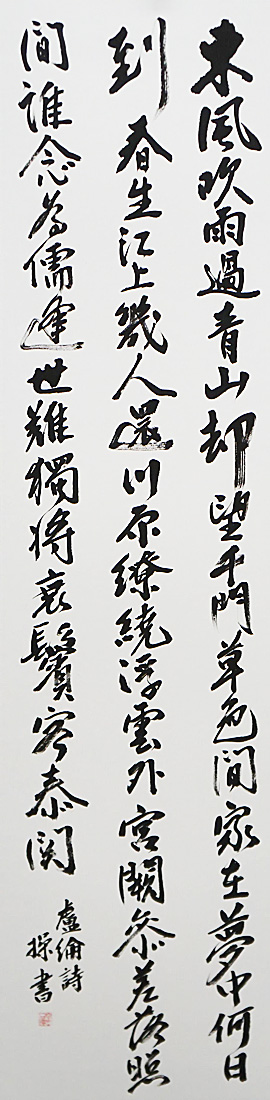 東風吹雨過青山却望千門草色間家在夢中何日
到春生江上幾人還川原繚繞浮雲外宮闕參差落照
間誰念為儒逢世難獨將衰鬢客秦関
盧綸詩
操書